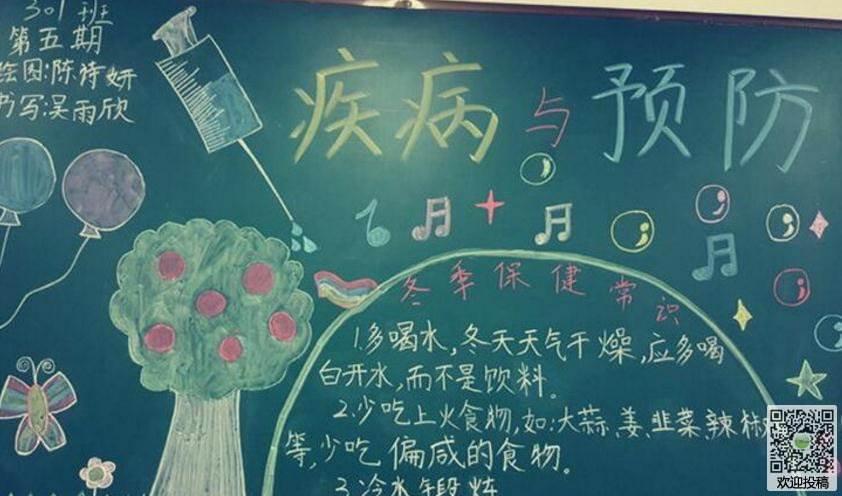 301班
第五期
绘图:陈诗妍
书写:吴雨欣
疾病与预防
冬季保健常识
1.多喝水,冬天天气干燥,应多喝
白开水,而不是饮料。
2.少吃上火食物,如:大蒜、姜、韭菜、辣椒
等,少吃偏咸的食物。
3.冷水锻炼
欢迎投稿